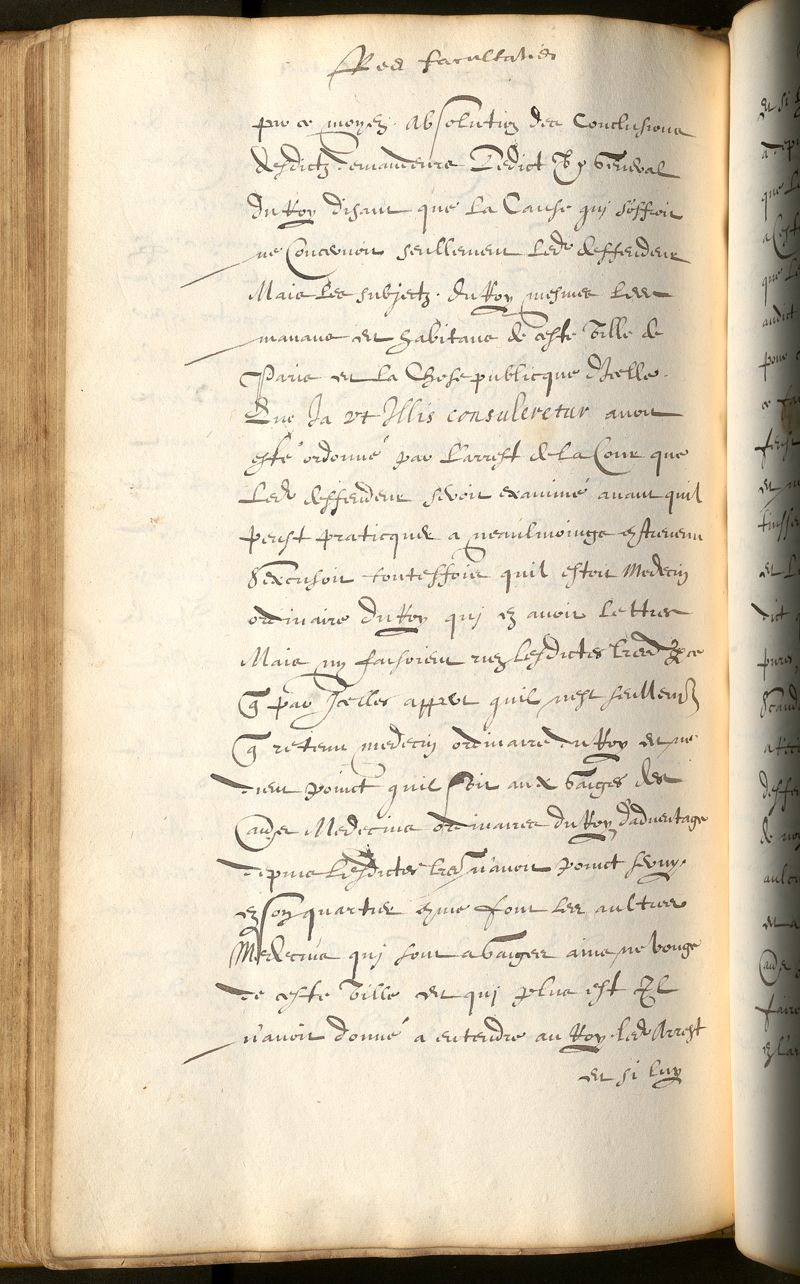 Res facultatis
par ce moyen absolution des Conclusions
desdictz demandeurs Ledict General
du Roy disant que la Cause qui soffroit
ne Concernoit seullement led. deffendeur
Mais les subjectz du Roy mesmes les
manans et habitans de ceste Ville de
Paris et la Chose publicque dIcelle.
Que Ja vt Illis consuleretur avoit
esté ordonné par larrest de la Cour que
led. deffendeur seroit examiné avant quil
peust praticquer a neaulmoings
Sexcusoit touteffois quil estoit Medecin
ordinaire du Roy qui en avoit lettres
Mais ny faisoient riez lesdictes lres ce
q par Icelles appert quil nest seullement
q retenu medecin ordinaire du Roy et ne
dient poinct quil soit aux gaiges des
aud.s Medecins ordinaires du Roy dadventage
depuis lesdictes lres navoit poinct servy
en son quartier comme font les aultres
Medecins qui sont a gaiges ains ne bouge
de ceste Ville et qui plus est Il
navoit donné a entendre au Roy led. Arrest
et si luy